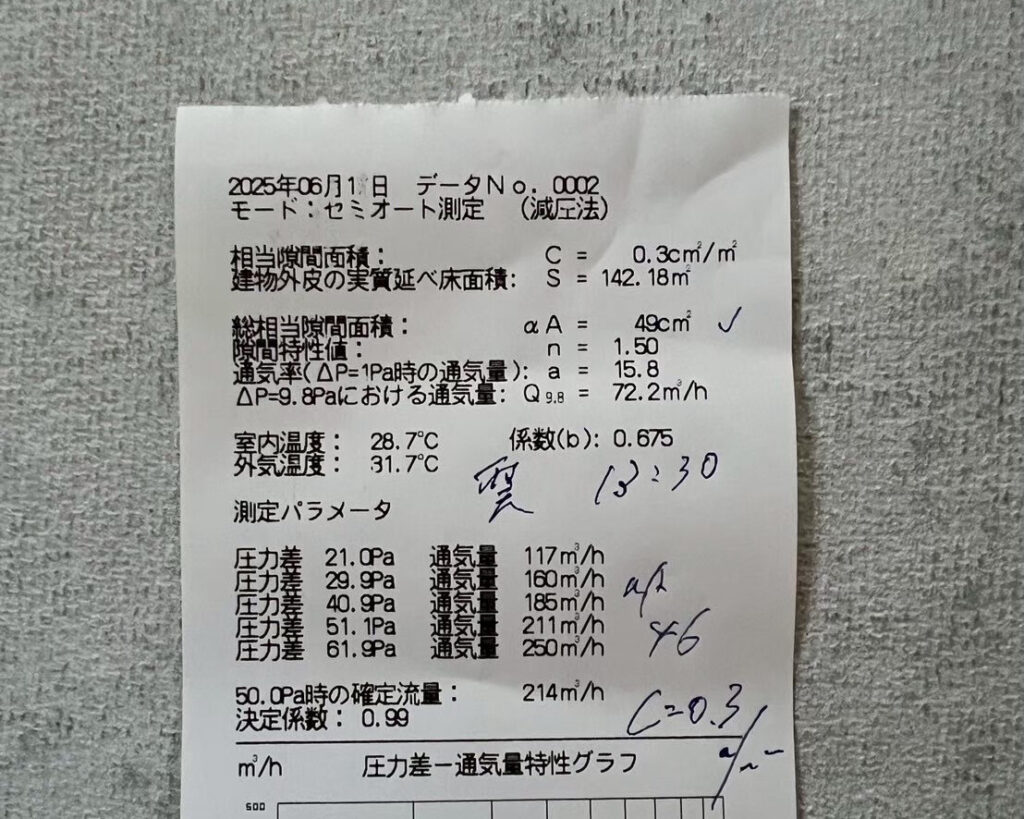 2025年06月1 日 データNo. 0002
モード：セミオート測定 （減圧法）
相当隙間面積： C = 0.3cm²/m²
建物外皮の実質延べ床面積: S = 142.18m²
総相当隙間面積： αA = 49cm² ✓
隙間特性値： n = 1.50
通気率(ΔP=1Pa時の通気量): a = 15.8
ΔP=9.8Paにおける通気量: Q9.8 = 72.2m³/h
室内温度： 28.7℃ 係数(b): 0.675
外気温度： 31.7℃
13:30
測定パラメータ
圧力差 21.0Pa 通気量 117m³/h
圧力差 29.9Pa 通気量 160m³/h
圧力差 40.9Pa 通気量 185m³/h
圧力差 51.1Pa 通気量 211m³/h
圧力差 61.9Pa 通気量 250m³/h
46
50.0Pa時の確定流量： 214m³/h
決定係数： 0.99
C=0.3
m³/h 圧力差－通気量特性グラフ
500